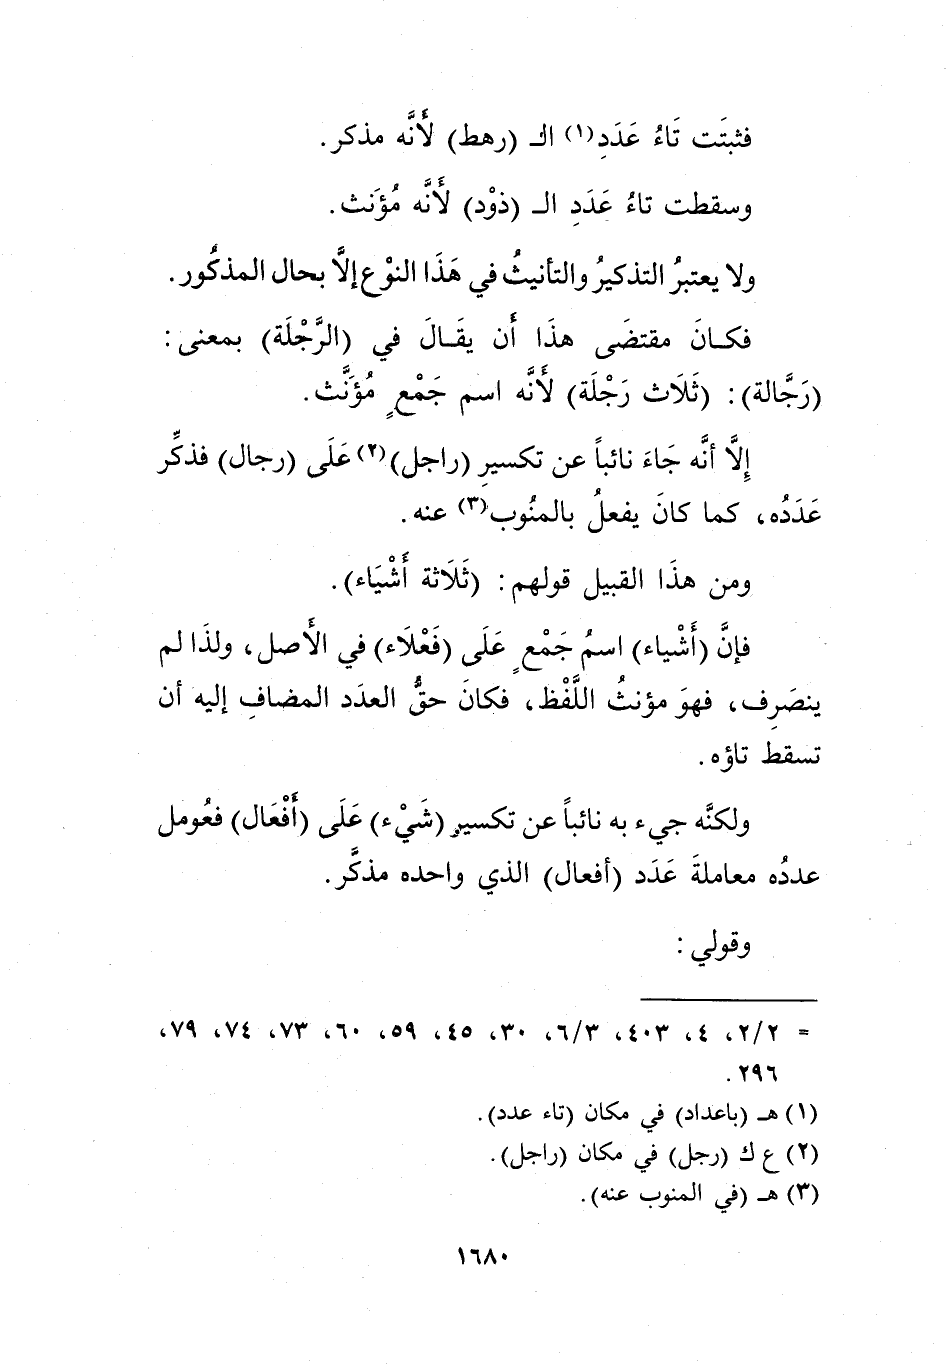 فثبتَت تَاءُ عَدَدِ(١) الـ (رهط) لأَنَّه مذكر.
وسقطت تاءُ عَدَدِ الـ (ذوْد) لأَنَّه مُؤَنث.
ولا يعتبرُ التذكيرُ والتأنيثُ في هَذَا النوْع إلاَّ بحال المذكُور.
فكـانَ مقتضَى هذَا أَن يقَـالَ في (الرَّجْلَة) بمعنى:
(رَجَّالة): (ثَلَاث رَجْلَة) لأَنَّه اسم جَمْعٍ مُؤَنَّث.
إِلَّا أنَّه جَاءَ نائباً عن تكسيرِ (راجل)(٢) عَلَى (رجال) فذكِّر
عَدَدُه، كما كانَ يفعلُ بالمنُوب(٣) عنه.
ومن هذَا القبيل قولهم: (ثَلَاثة أَشْيَاء).
فإنَّ (أَشْياء) اسمُ جَمْعٍ عَلَى (فَعْلَاء) في الأَصل، ولذَا لم
ينصَرِف، فهوَ مؤنثُ اللَّفْظ، فكانَ حقُّ العدَد المضافِ إليه أن
تسقط تاؤه.
ولكنَّه جيء به نائباً عن تكسيرِ (شَيْء) عَلَى (أَفْعَال) فعُومل
عددُه معاملةَ عَدَد (أفعال) الذي واحده مذكَّر.
وقولي:
= ٢/٢، ٤، ٤٠٣، ٦/٣، ٣٠، ٤٥، ٥٩، ٦٠، ٧٣، ٧٤، ٧٩،
٢٩٦.
(١) هـ (باعداد) في مكان (تاء عدد).
(٢) ع ك (رجل) في مكان (راجل).
(٣) هـ (في المنوب عنه).
١٦٨٠